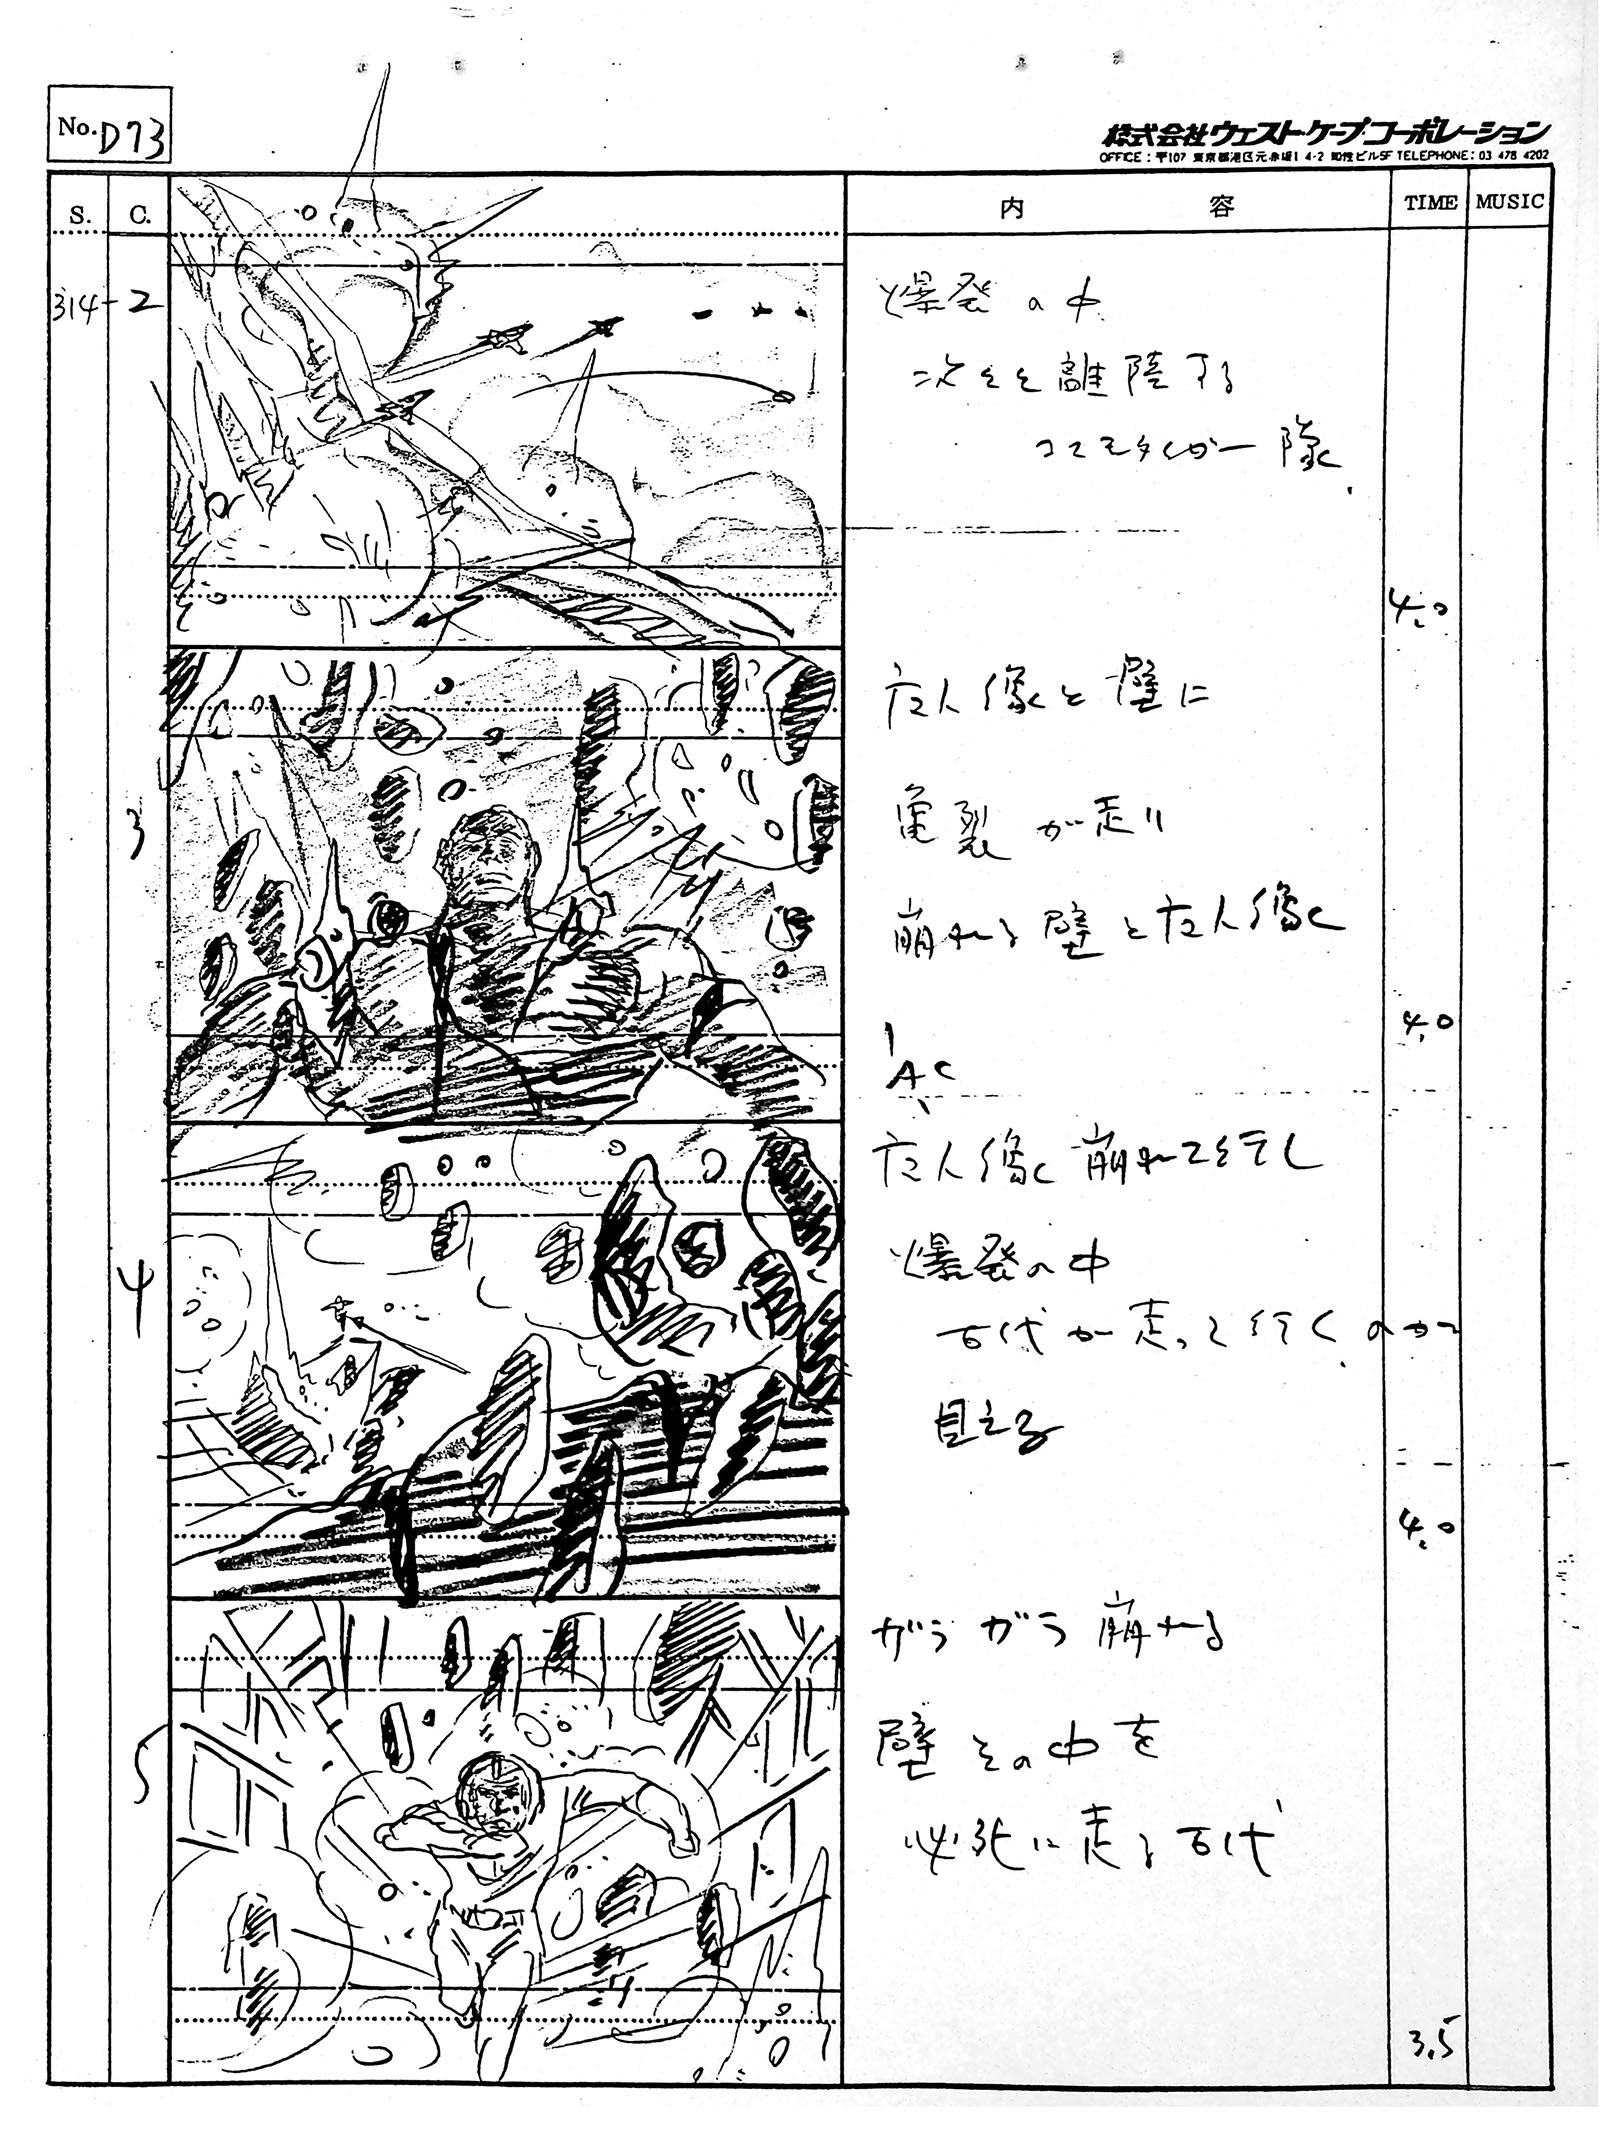 No. D73
株式会社ウェスト・ケープ・コーポレーション
OFFICE：〒107 東京都港区元赤坂1 4-2 TELEPHONE：03 478 4202
S. C. 内 容 TIME MUSIC
314-2
爆発の中
次々と離陸する
コスモタイガー隊
4.0
3
巨人像と壁に
亀裂が走り
崩れる壁と巨人像
4.0
AC
4
巨人像崩れて行く
爆発の中
古代が走って行くのが
見える
4.0
5
ガラガラ崩れる
壁 その中を
必死に走る古代
3.5